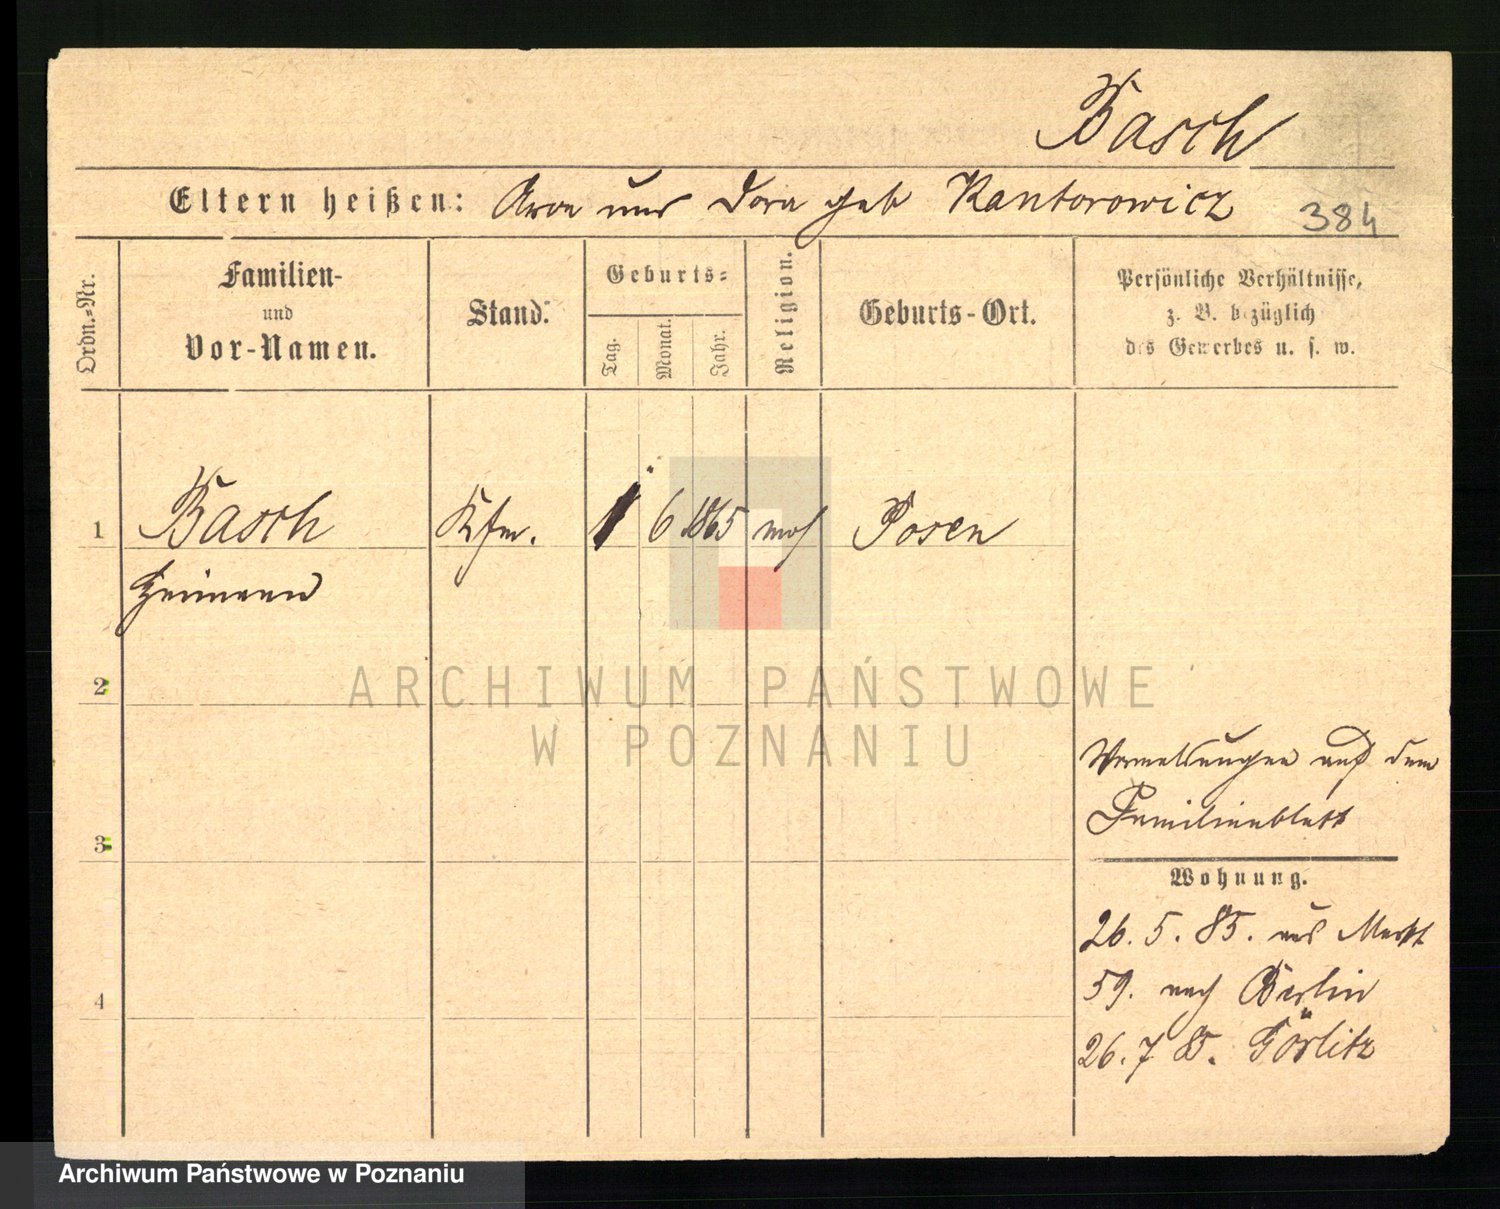 Basch
Eltern heißen: Aron und Dora geb Kantorowicz
384
Ordn.-Nr.
Familien-
und
Vor-Namen.
Stand.
Geburts-
Tag.
Monat.
Jahr.
Religion.
Geburts-Ort.
Persönliche Verhältnisse,
z. B. bezüglich
des Gewerbes u. s. w.
1 Basch Kfm. 1 6 1865 mos Posen
Heimann
2
ARCHIWUM PAŃSTWOWE
W POZNANIU
Vermeldungen auf dem
Familienblatt
3
Wohnung.
26. 5. 85. aus Markt
59. nach Berlin
4
26. 7 85. Görlitz
Archiwum Państwowe w Poznaniu